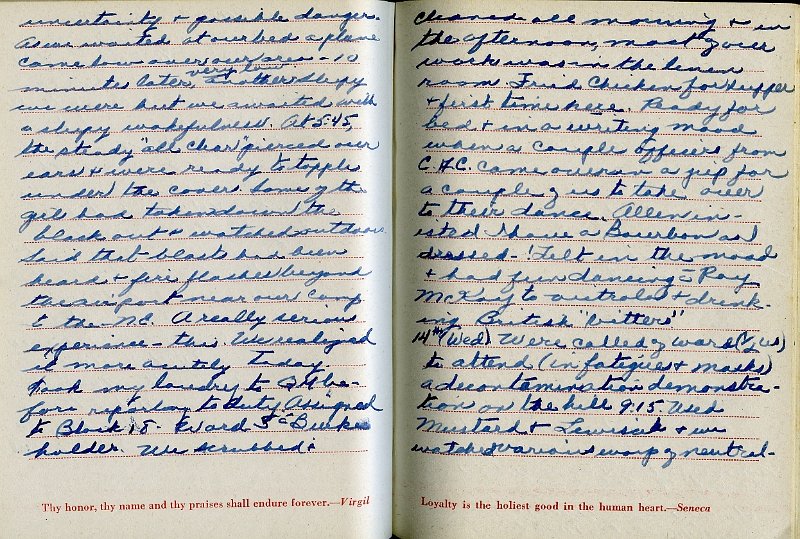 uncertainty + possible danger.
As we waited at our bed a plane
came low over our area - 10
minutes later, very low another. Sleepy
we were but we awaited with
a sleepy wakefulness. At 5:45,
the steady "all clear" pierced our
ears + were ready to topple
under the covers. Some of the
girls had taken down the
black out + watched outdoors.
Said that blasts had been
heard + fire flashes beyond
the airport near our camp
to the N.E. A really serious
experience - this. We realized
it more acutely today.
Took my laundry to QM be-
fore reporting to duty. Assigned
to Block 18 - Ward 3
holder. We scrubbed +
Thy honor, thy name and thy praises shall endure forever.—Virgil
cleaned all morning + in
the afternoon, most of our
work was in the linen
room. Fried Chicken for supper
+ first time here. Ready for
bed + in a writing mood
when a couple officers from
C.H.C. came over in a jeep for
a couple of us to take over
to their dance. Allen in-
sisted I have a Bourbon as I
dressed - Felt in the mood
+ had fun dancing Ray
McKay to + drink-
ing British "bitters"
14th (Wed) Were called of ward
to attend (in fatigues + masks)
a decontamination demonstra-
tion on the hill 9:15. Used
Mustard + Lewisite + we
watched various ways of neutral-
Loyalty is the holiest good in the human heart.—Seneca